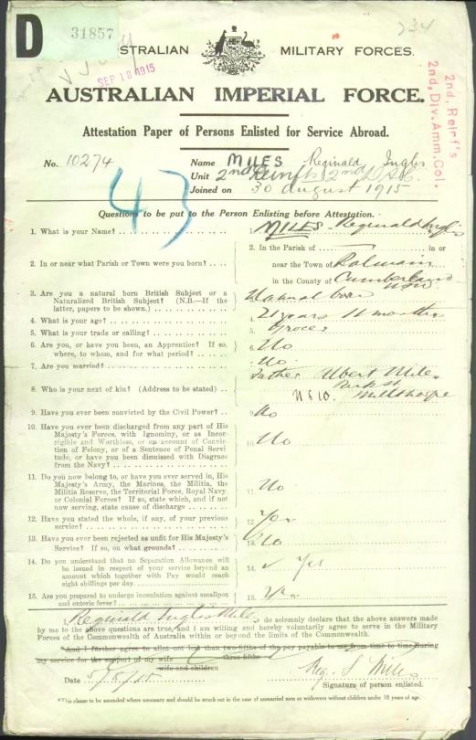 D 31857
AUSTRALIAN MILITARY FORCES.
SEP 18 1915
234
AUSTRALIAN IMPERIAL FORCE.
2nd. Reinf's
2nd. Div. Amm. Col.
Attestation Paper of Persons Enlisted for Service Abroad.
No. 10274 Name MILES Reginald Ingles
Unit 2nd Reinfts 2nd D.A.C.
Joined on 30 August 1915
43
Questions to be put to the Person Enlisting before Attestation.
1. What is your Name? 1. MILES Reginald Ingles
2. In or near what Parish or Town were you born? 2. In the Parish of in or
near the Town of Balmain
in the County of Cumberland NSW
3. Are you a natural born British Subject or a
Naturalized British Subject? (N.B.—If the
latter, papers to be shown.) Natural born
4. What is your age? 21 years 11 months
5. What is your trade or calling? 5. Grocer
6. Are you, or have you been, an Apprentice? If so,
where, to whom, and for what period? 6. No
7. Are you married? No
8. Who is your next of kin? (Address to be stated) Father Albert Miles
Park St
Millthorpe
9. Have you ever been convicted by the Civil Power? 9. No
10. Have you ever been discharged from any part of His
Majesty's Forces, with Ignominy, or as Incor-
rigible and Worthless, or on account of Convic-
tion of Felony, or of a Sentence of Penal Servi-
tude, or have you been dismissed with Disgrace
from the Navy? 10. No
11. Do you now belong to, or have you ever served in, His
Majesty's Army, the Marines, the Militia, the
Militia Reserve, the Territorial Force, Royal Navy
or Colonial Forces? If so, state which, and if not
now serving, state cause of discharge 11. No
12. Have you stated the whole, if any, of your previous
service? 12. Yes
13. Have you ever been rejected as unfit for His Majesty's
Service? If so, on what grounds? 13. No
14. Do you understand that no Separation Allowance will
be issued in respect of your service beyond an
amount which together with Pay would reach
eight shillings per day 14. Yes
15. Are you prepared to undergo inoculation against smallpox
and enteric fever? 15. Yes
I Reginald Ingles Miles, do solemnly declare that the above answers made
by me to the above questions are true, and I am willing and hereby voluntarily agree to serve in the Military
Forces of the Commonwealth of Australia within or beyond the limits of the Commonwealth.
*And I further agree to allot not less than two-fifths of the pay payable to me from time to time during
three-fifths
my service for the support of my wife
wife and children
Date Reg. I. Miles
Signature of person enlisted.
*This clause to be amended where necessary and should be struck out in the case of unmarried men or widowers without children under 18 years of age.